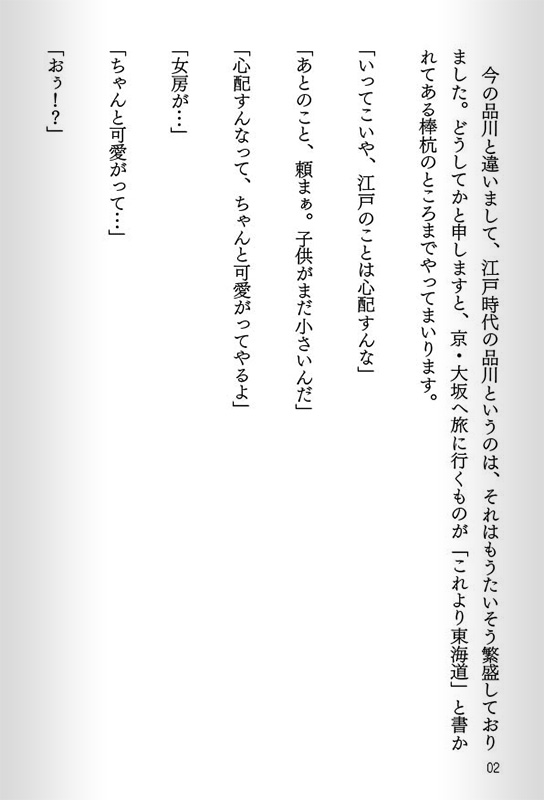 今の品川と違いまして、江戸時代の品川というのは、それはもうたいそう繁盛しており
ました。どうしてかと申しますと、京・大坂へ旅に行くものが「これより東海道」と書か
れてある棒杭のところまでやってまいります。
「いってこいや、江戸のことは心配すんな」
「あとのこと、頼まぁ。子供がまだ小さいんだ」
「心配すんなって、ちゃんと可愛がってやるよ」
「女房が…」
「ちゃんと可愛がって…」
「おぅ！？」
02